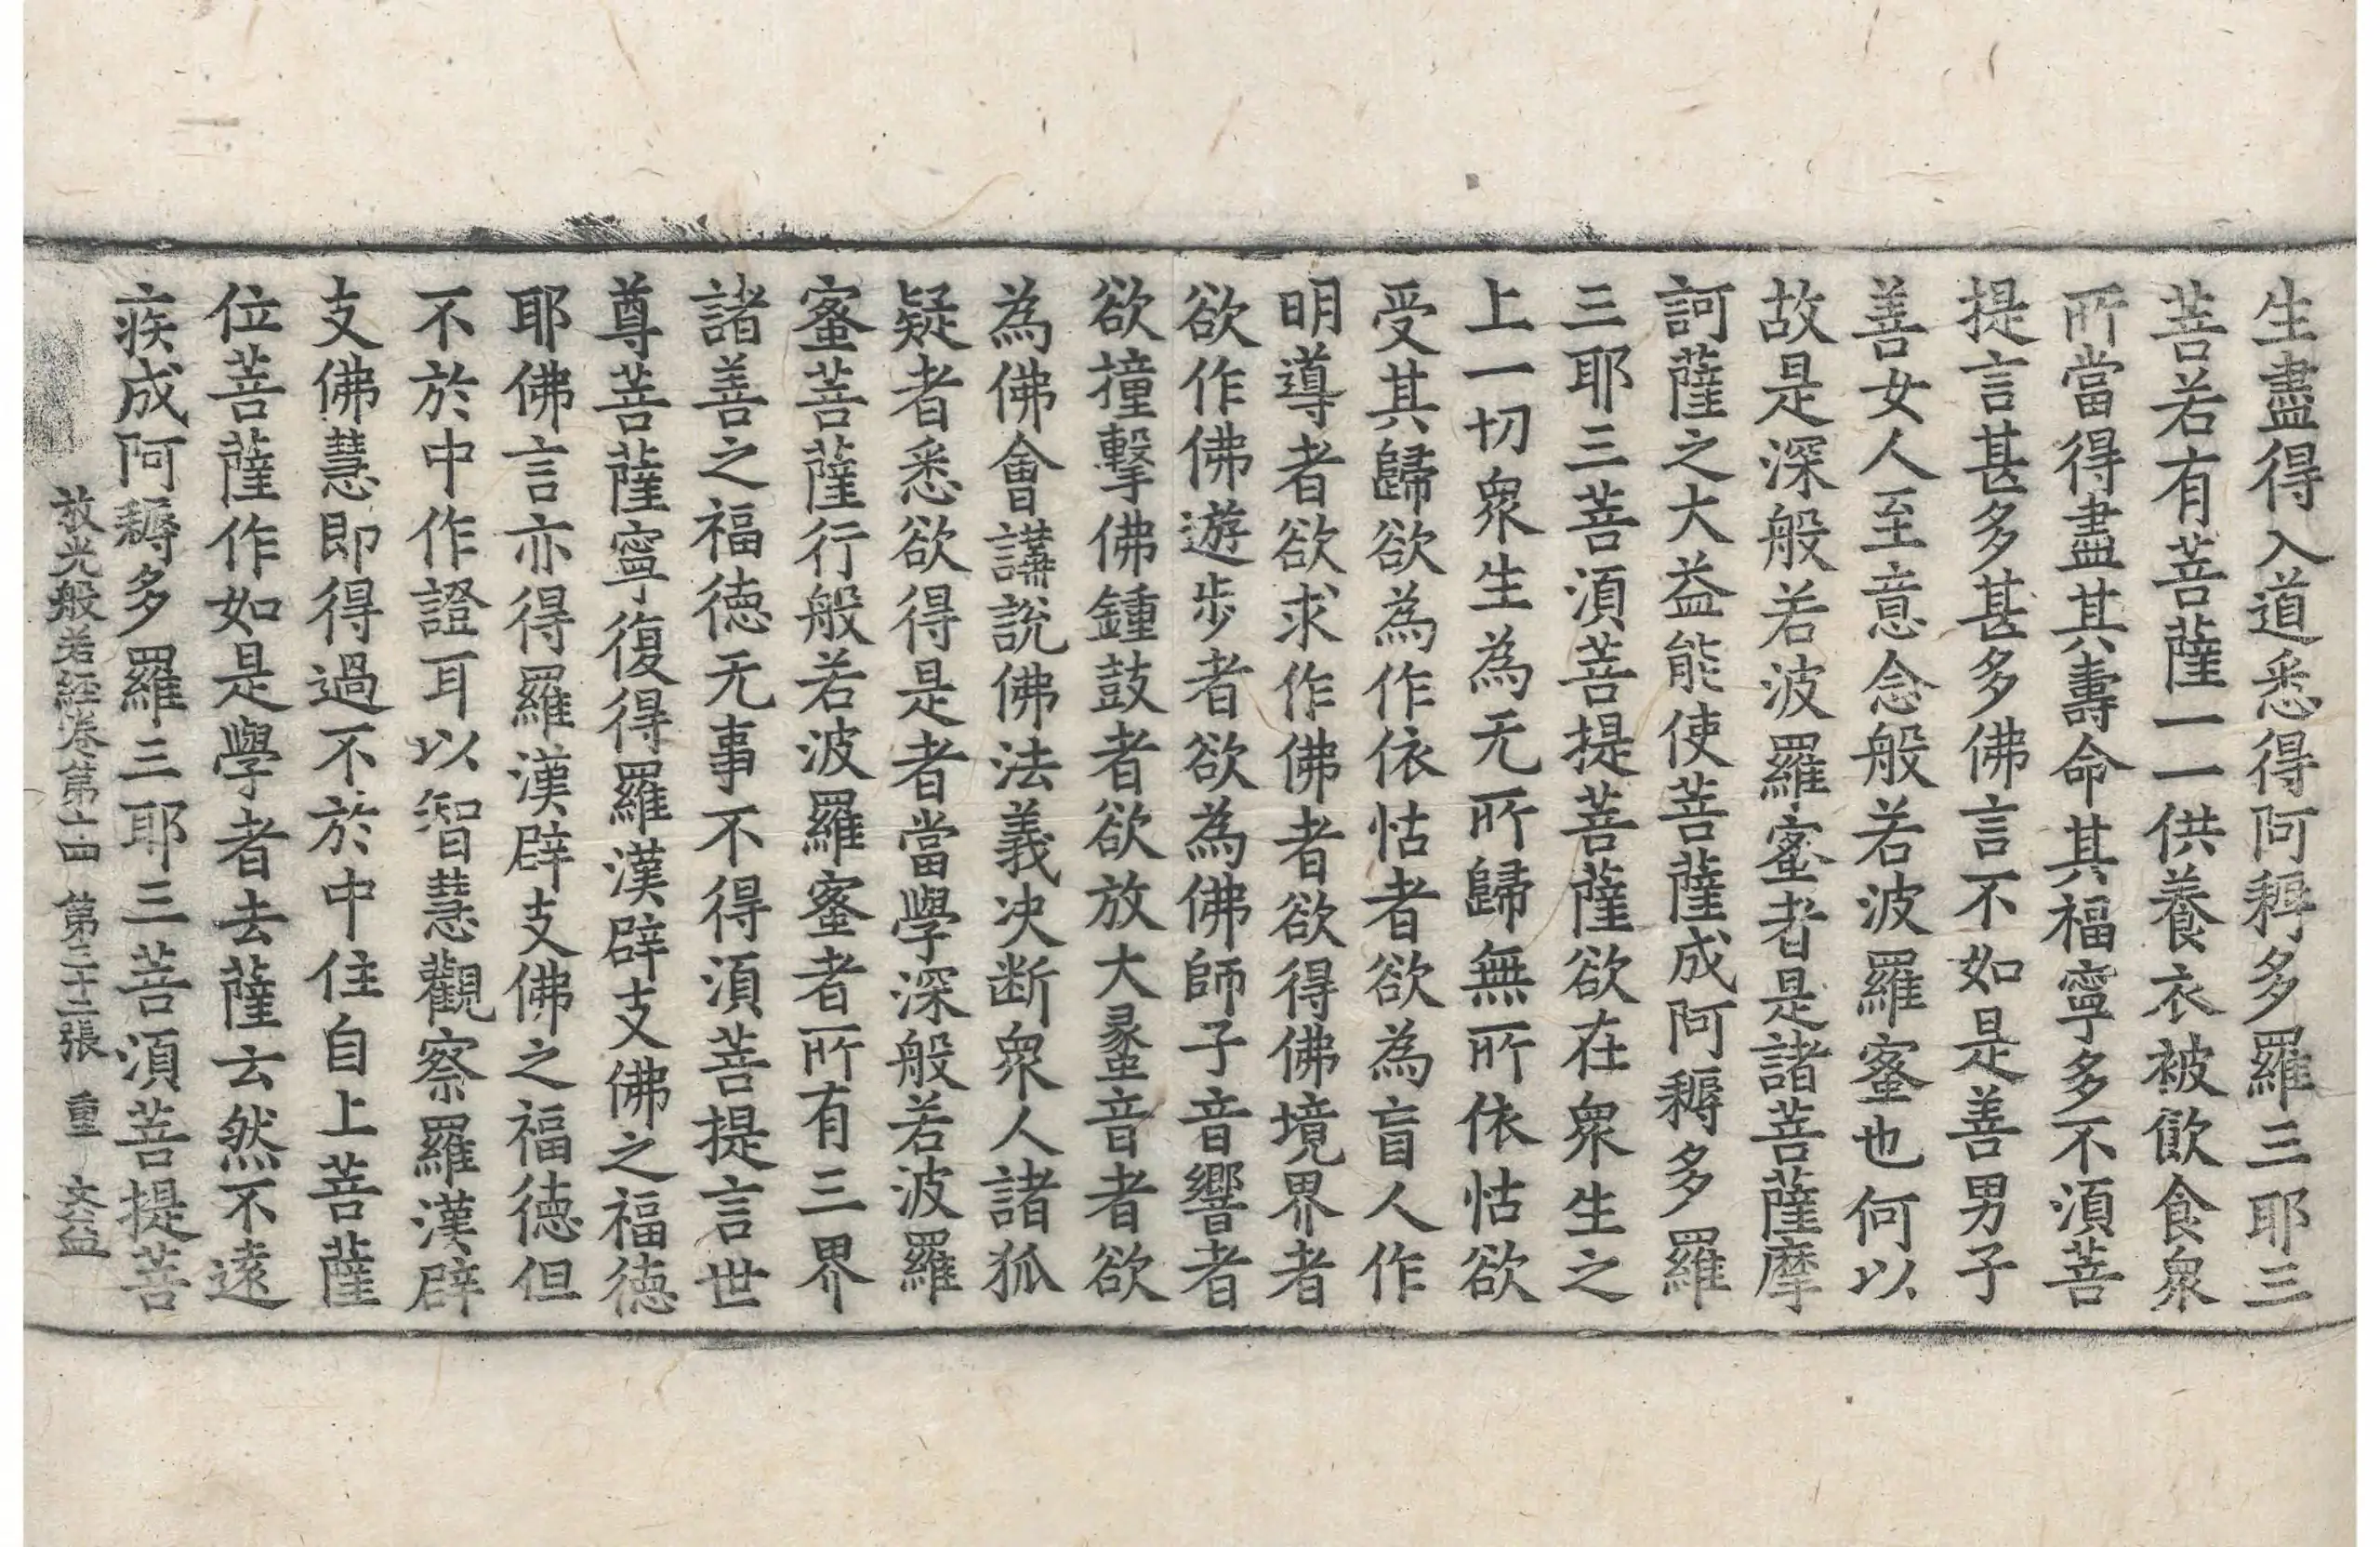 生盡得入道悉得阿耨多羅三耶三
菩若有菩薩一一供養衣被飲食衆
所當得盡其壽命其福寧多不湏菩
提言甚多甚多佛言不如是善男子
善女人至意念般若波羅蜜也何以
故是深般若波羅蜜者是諸菩薩摩
訶薩之大益能使菩薩成阿耨多羅
三耶三菩湏菩提菩薩欲在衆生之
上一切衆生為无所歸無所依怙欲
受其歸欲為作依怙者欲為盲人作
明導者欲求作佛者欲得佛境界者
欲作佛遊步者欲為佛師子音響者
欲撞擊佛鍾鼓者欲放大䗍音者欲
為佛會講說佛法義決断衆人諸狐
疑者悉欲得是者當學深般若波羅
蜜菩薩行般若波羅蜜者所有三界
諸善之福徳无事不得湏菩提言世
尊菩薩寧復得羅漢辟支佛之福徳
耶佛言亦得羅漢辟支佛之福徳但
不於中作證耳以智慧觀察羅漢辟
支佛慧即得過不於中住自上菩薩
位菩薩作如是學者去薩云然不遠
疾成阿耨多羅三耶三菩湏菩提菩
放光般若經卷第十四 第三十二張 重 文益